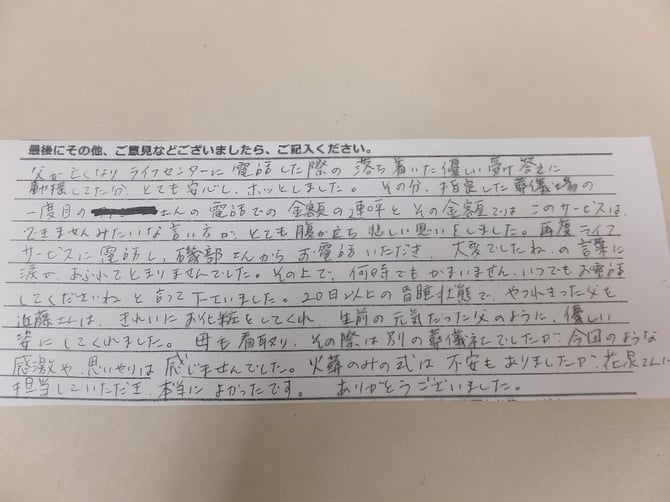 最後にその他、ご意見などございましたら、ご記入ください。
父が亡くなりライフセンターに電話した際の落ち着いた優しい受け答えに
動揺してた分、とても安心し、ホッとしました。その分、指定した葬儀場の
一度目の さんの電話での金額の連呼とその金額ではこのサービスは
できませんみたいな言い方が、とても腹が立ち悲しい思いをしました。再度ライフ
サービスに電話し、磯部さんからお電話いただき、大変でしたね、の言葉に
涙があふれてとまりませんでした。その上で、何時でもかまいません、いつでもお電話
してくださいねと言って下さいました。20日以上の昏睡状態で、やつれきった父も
近藤さんは、きれいにお化粧をしてくれ、生前の元気だった父のように、優しい
姿にしてくれました。母も看取り、その際は別の葬儀社でしたが、今回のような
感激や、思いやりは感じませんでした。火葬のみの式は不安もありましたが、 さんに
担当していただき、本当によかったです。ありがとうございました。